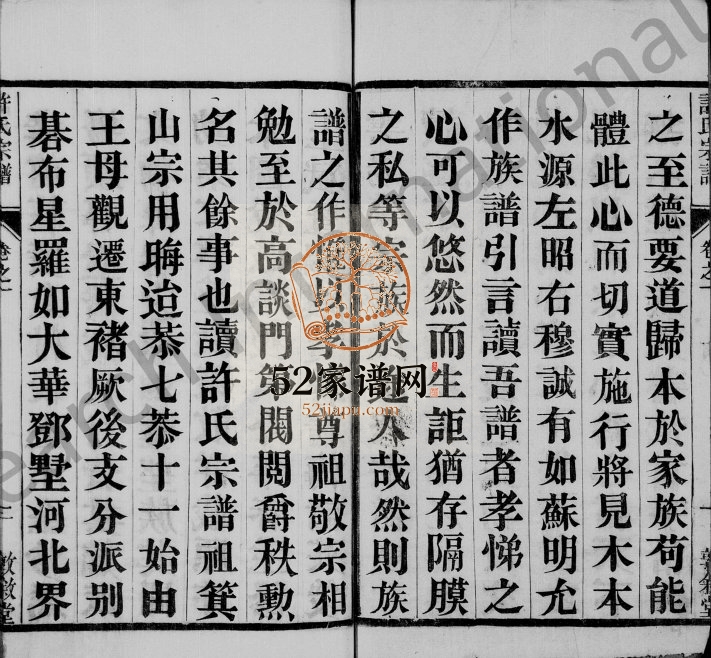 之至德要道歸本於家族苟能
體此心而切實施行將見木本
水源左昭右穆誠有如蘇明允
作族譜引言讀吾譜者孝悌之
心可以悠然而生詎猶存隔膜
之私等家族於途人哉然則族
譜之作 以孝 尊祖敬宗相
勉至於高談門第閥閱爵秩勲
名其餘事也讀許氏宗譜祖箕
山宗用晦迨恭七恭十一始由
王母觀遷東禇厥後支分派別
碁布星羅如大華鄧墅河北界
許氏宗譜
卷之一
敦敘堂
許氏宗譜
卷之一
二
敦敘堂
52家谱网
52jiapu.com
earch International